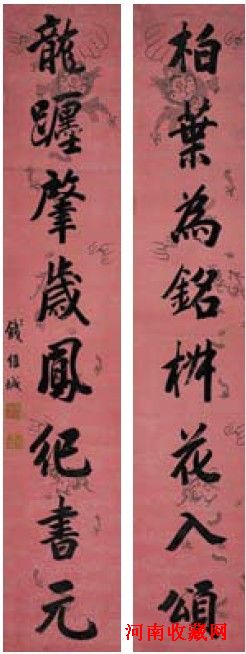 柏葉為銘椒花入頌
龍躔肇歲鳳紀書元
錢維城
河南收藏网